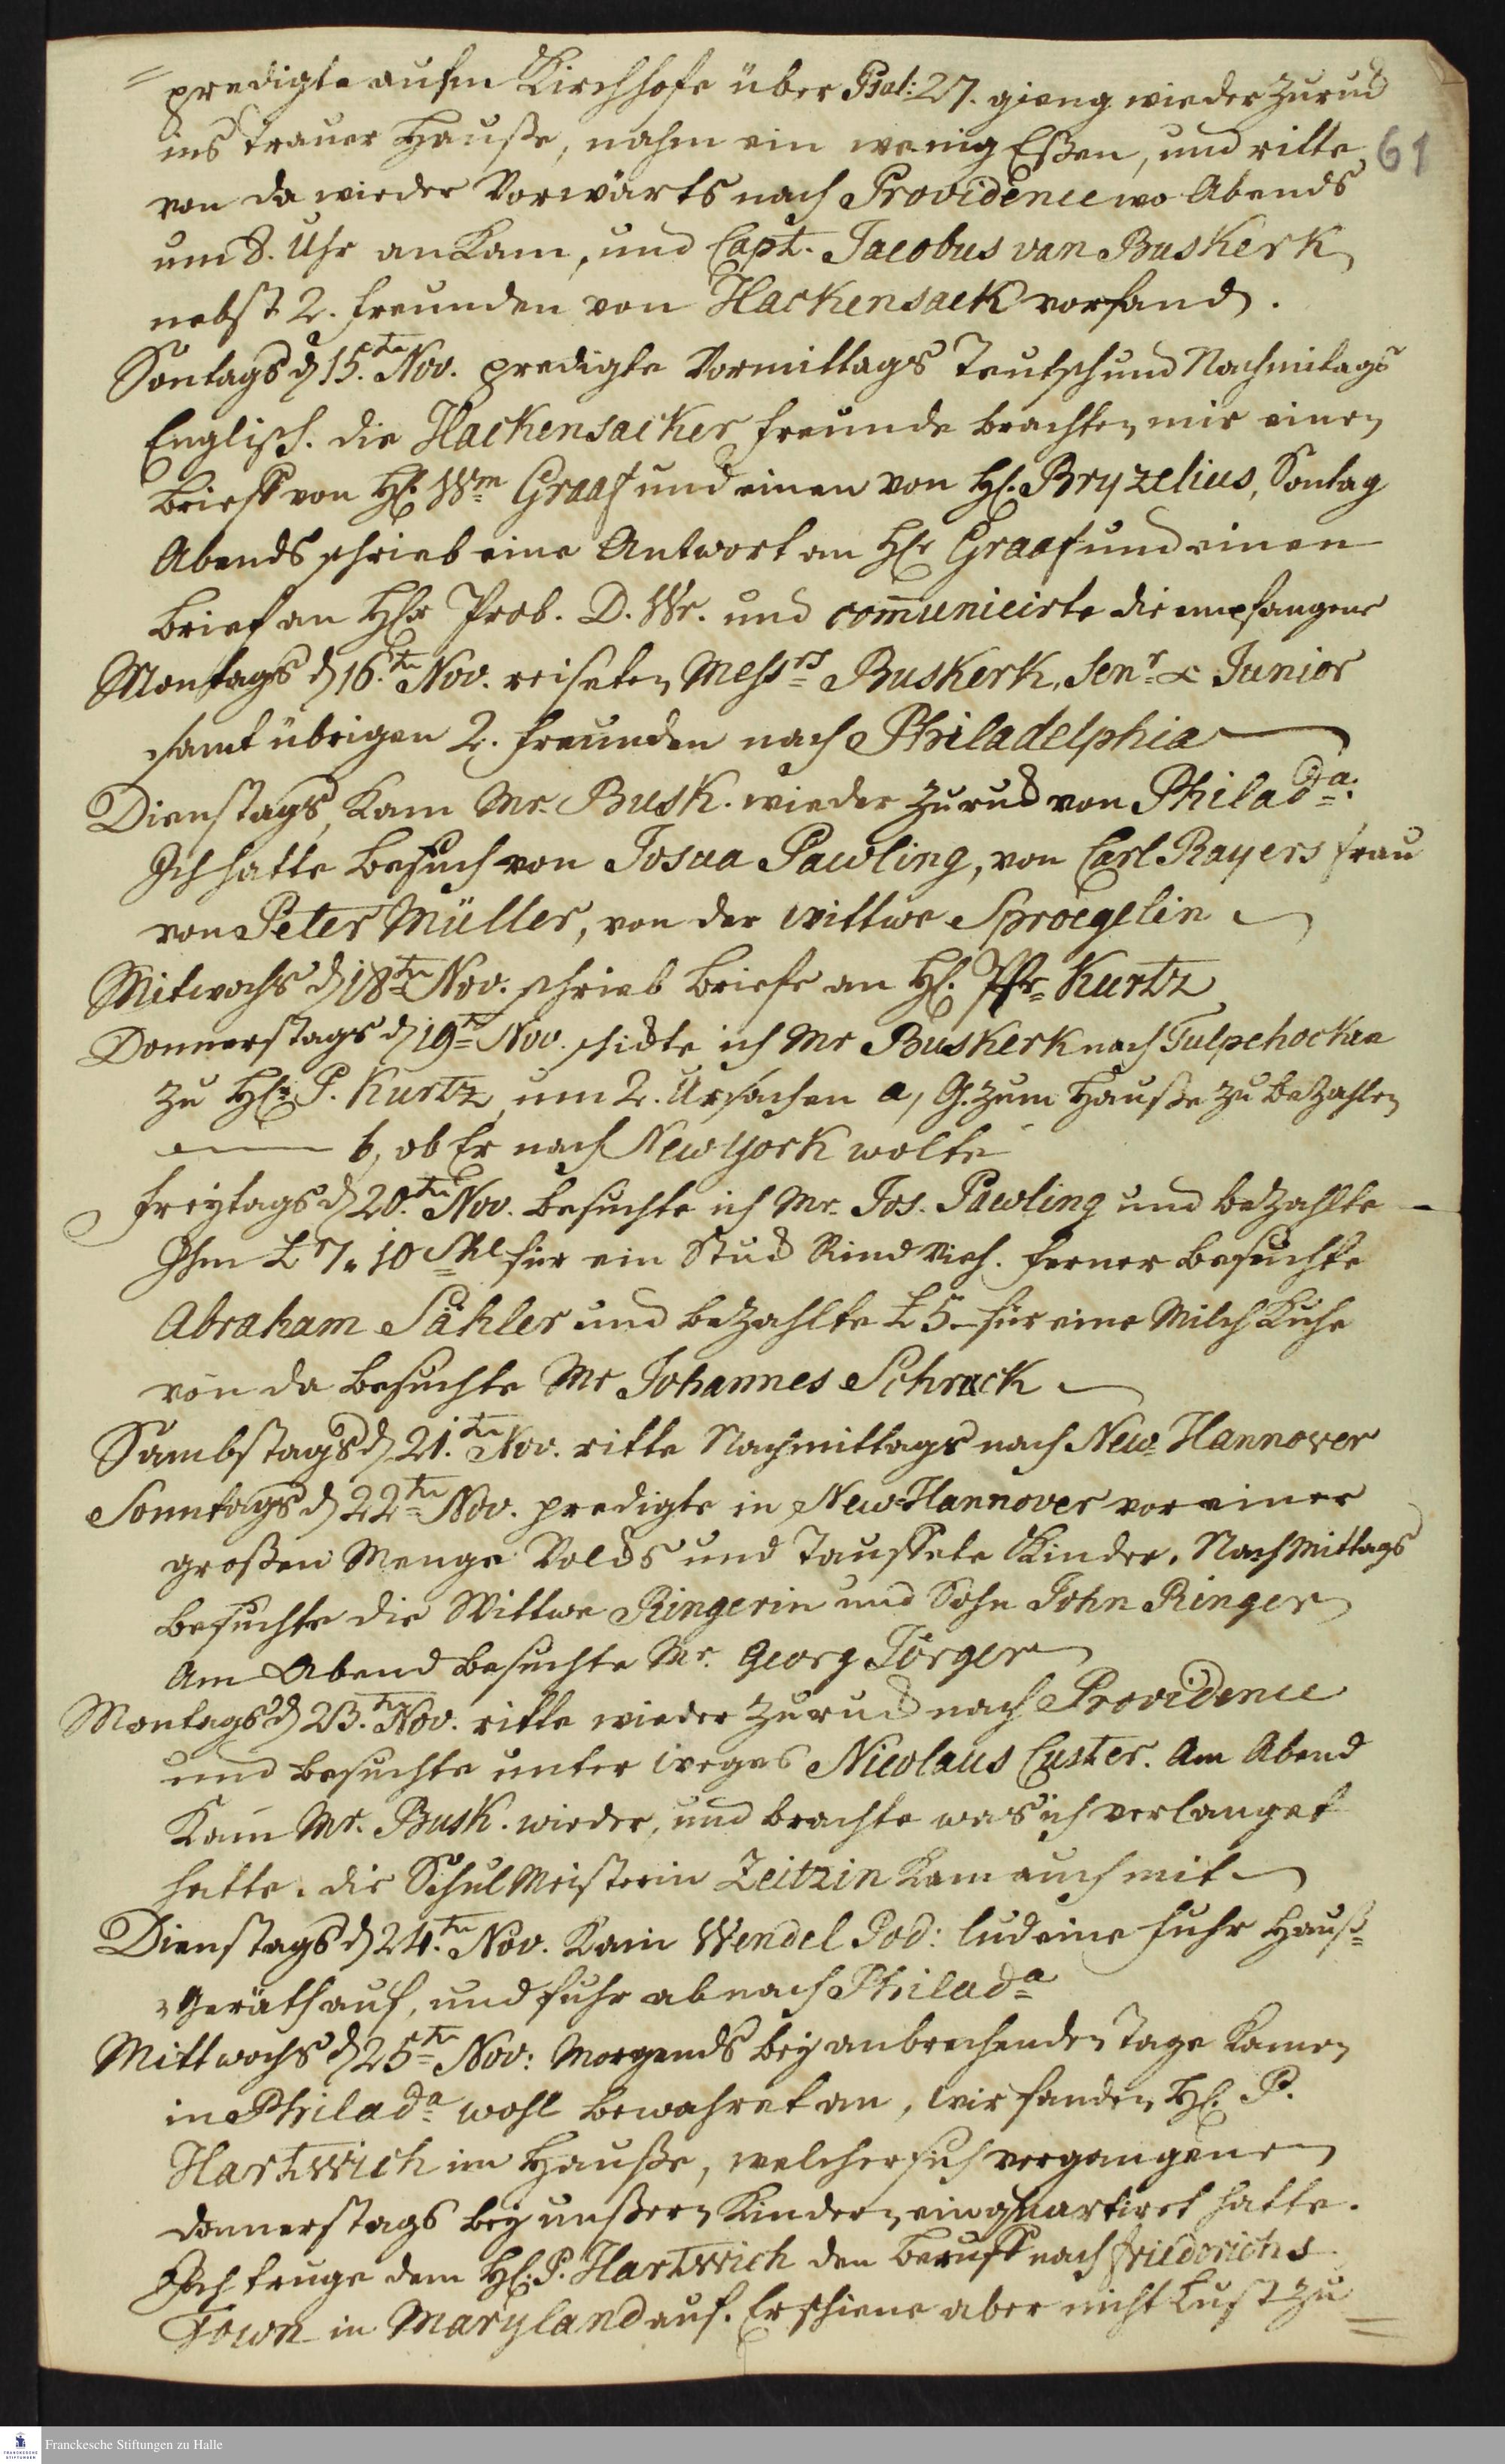 = predigte aufm Kirchhofe über Psal: 27. gieng wieder zurück
ins Trauer Hauße, nahm ein wenig Eßen, und ritte
61
von da wieder Vorwärts nach Providence wo Abends
um 8. Uhr ankam, und Capt. Jacobus van Buskerk
nebst 2. freunden von Hackensack vorfand.
Sontags d 15.ten Nov. predigte Vormittags Teutsch und Nachmitags
Englisch. die Hackensacker freunde brachten mir einen
brieff von H. Wm Graaf und einen von H. Bryzelius, Sontag
Abends schrieb eine Antwort an H. Graaf und einen
brief an H. Prob. D. Wr. und com̄unicirte die empfangene
Montags d 16.ten Nov. reiseten Messrs Buskerk, Senr & Junior
samt übrigen 2. freunden nach Philadelphia
Dienstags, kam Mr. Busk. wieder zurück von Philada.
Ich hatte besuch von Josua Pawling, von Carl Rayers frau
von Peter Müller, von der wittwe Sproegelin
Mitwochs d 18ten Nov. schrieb briefe an H. Pfr Kurtz
Donnerstags d 19t Nov. schickte ich Mr Buskerk nach Tulpehocken
zu H. P. Kurtz, um 2. Ursachen a, G. zum Hauße zu bezahlen
b, ob Er nach New york wolte
freytags d 20.ten Nov. besuchte ich Mr. Jos. Pawling und bezahlte
Ihm £ 7. 10 Shl für ein Stück Rind Vieh. ferner besuchte
Abraham Sähler und bezahlte £ 5 für eine Milch Kuhe
von da besuchte Mr Johannes Schrack
Sambstags d 21.ten Nov. ritte Nachmittags nach New Hannover
Sonntags d 22ten Nov. predigte in New-Hannover vor einer
großen Menge Volcks und Tauffete Kinder. Nach Mittags
besuchte die Wittwe Ringerin und Sohn John Ringer
Am Abend besuchte Mr. Georg Jörger
Montags d 23.t Nov. ritte wieder zurück nach Providence
und besuchte unter weges Nicolaus Custer. Am Abend
kam Mr. Busk. wieder, und brachte was ich verlanget
hatte. die Schul Meisterin Zeitzin kam auch mit
Dienstags d 24.ten Nov. kam Wendel Pod: lud eine fuhr Hauß=
=Geräth auf, und fuhr ab nach Philada
Mittwochs d 25ten Nov: Morgends bey anbrechenden Tage kamen
in Philada wohl bewahret an, wir fanden H. P.
Hartwich im Hauße, welcher sich vergangenen
donnerstags bey unßern Kindern einquartiret hatte.
Ich truge dem H. P. Hartwich den beruff nach friedorichs
Town in Maryland auf. Er schiene aber nicht Lust zu =
Franckesche Stiftungen zu Halle